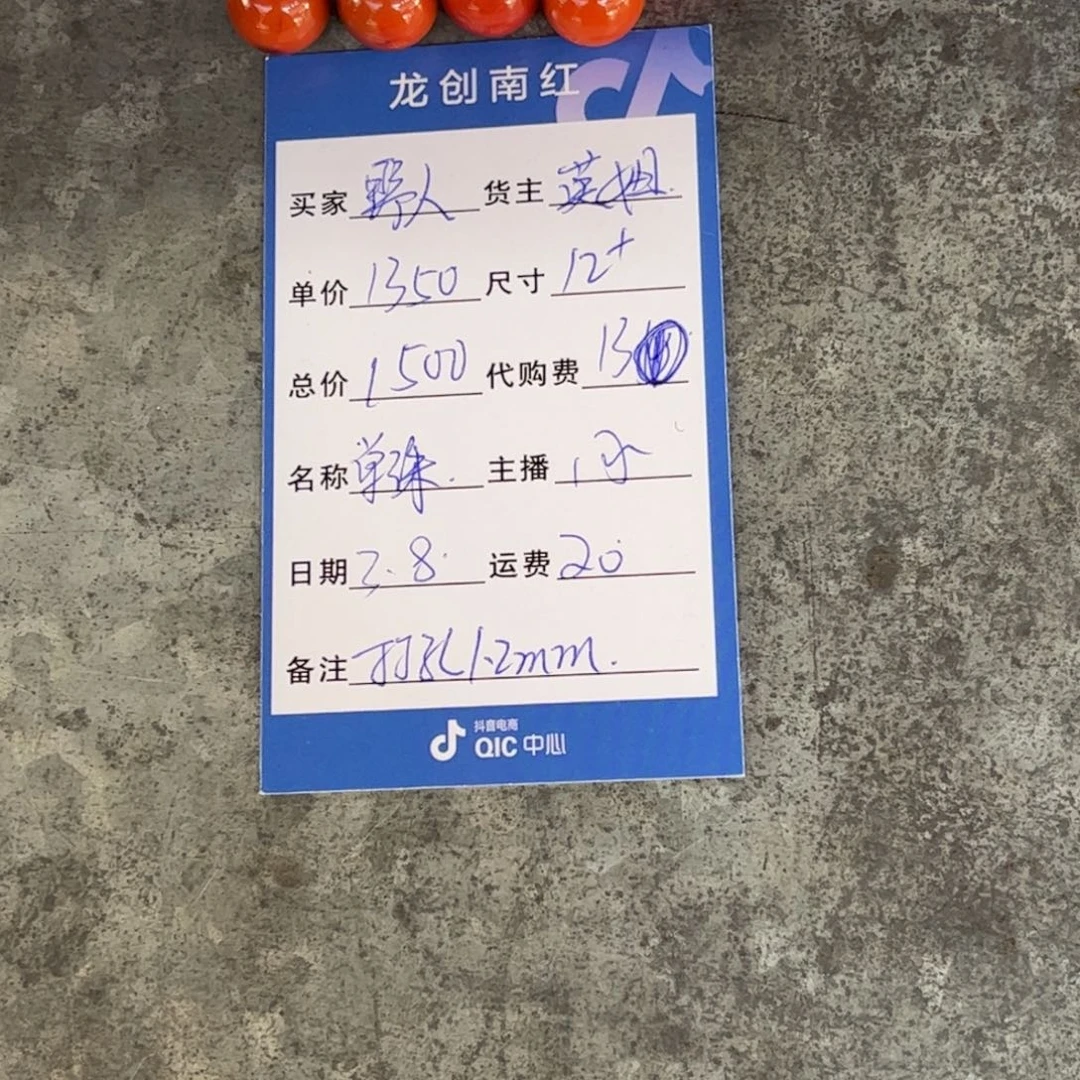 龙创南红
买家 野人 货主 英姐.
单价 1350 尺寸 12+
总价 1500 代购费 13
名称 单珠. 主播
日期 2.8. 运费 20
备注 打孔1.2mm.
抖音电商
QIC 中心